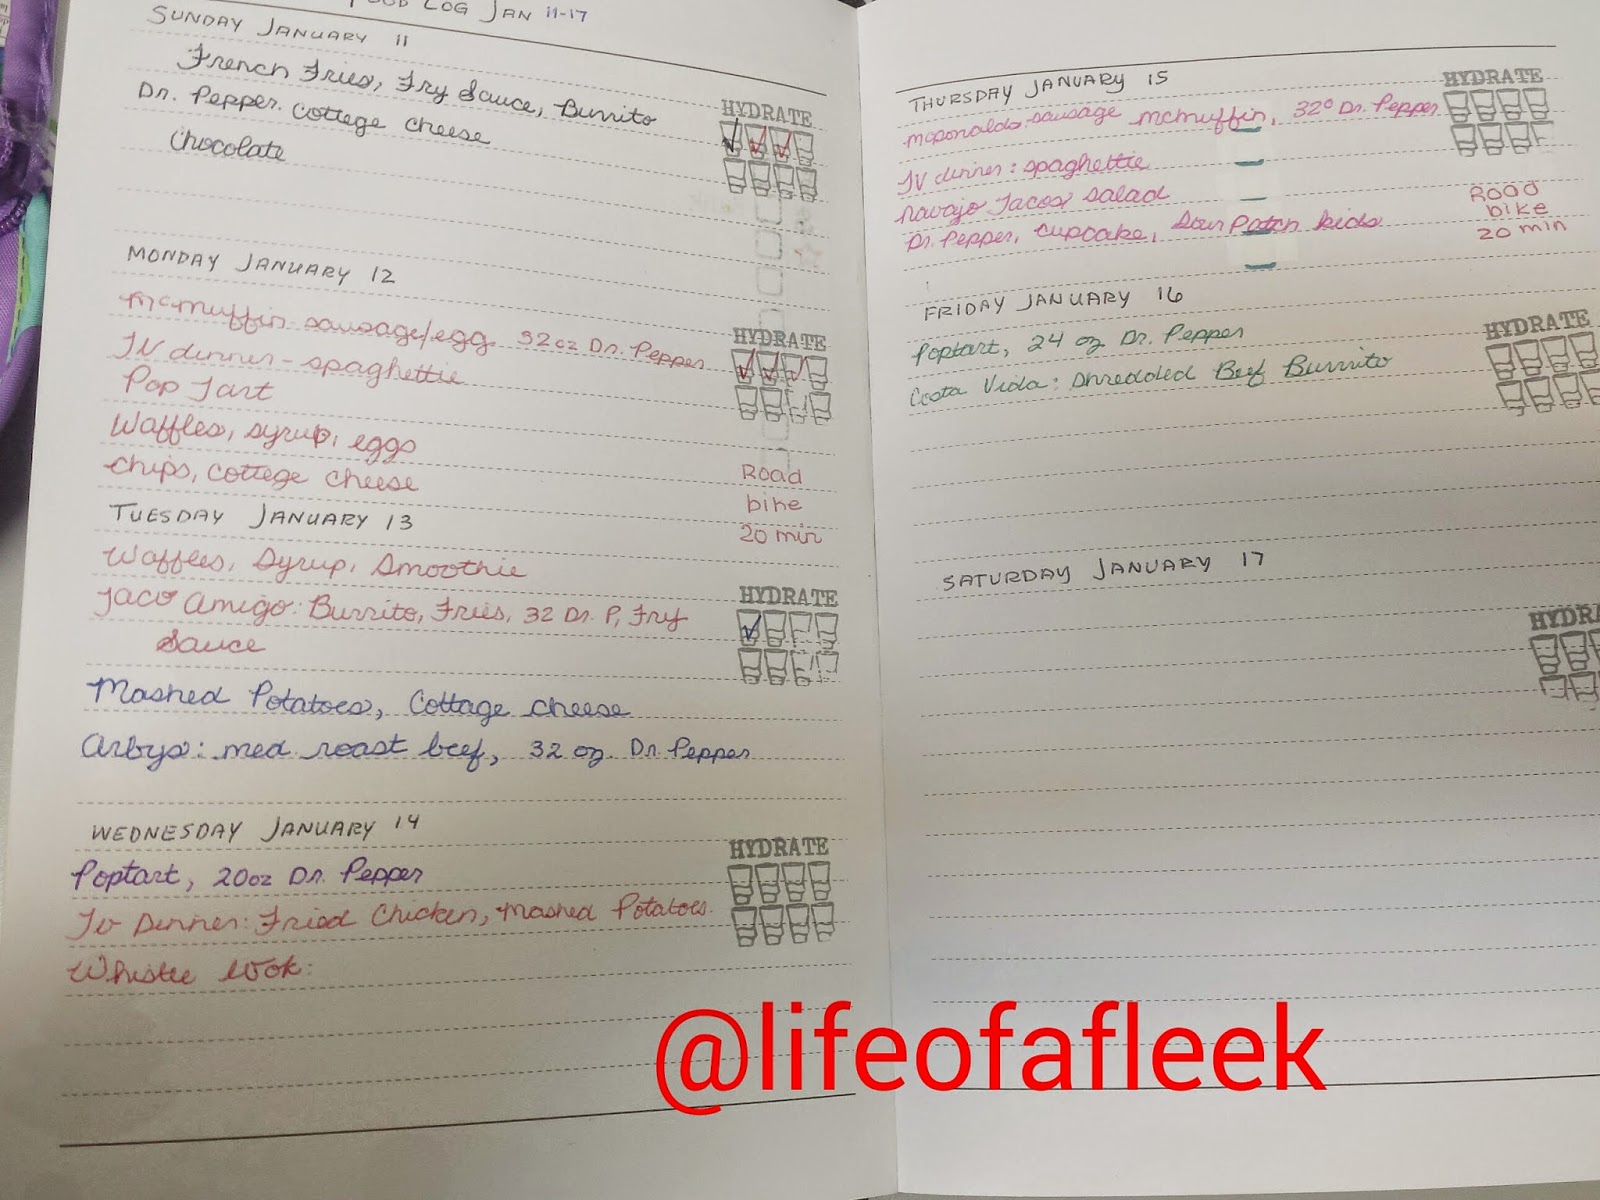 FOOD LOG JAN 11-17
SUNDAY JANUARY 11
French Fries, Fry Sauce, Burrito
Dr. Pepper. Cottege cheese
Chocolate
HYDRATE
MONDAY JANUARY 12
McMuffin sausage/egg 32oz Dr. Pepper
TV dinner - spaghettie
Pop Tart
Waffles, syrup, eggs
Chips, cottege cheese
HYDRATE
Road
bike
20 min
TUESDAY JANUARY 13
Waffles, Syrup, Smoothie
Taco Amigo: Burrito, Fries, 32 Dr. P, Fry
Sauce
Mashed Potatoes, Cottage cheese
Arbys: med roast beef, 32 oz. Dr. Pepper
HYDRATE
WEDNESDAY JANUARY 14
Poptart, 20oz Dr. Pepper
Tv Dinner: Fried Chicken, Mashed Potatoes.
Whistle Wok:
HYDRATE
THURSDAY JANUARY 15
mcdonalds sausage mcmuffin, 32o Dr. Pepper
TV dinner: spaghettie
Navajo Tacos salad
Dr. Pepper, cupcake, Sour Patch kids
HYDRATE
Road
bike
20 min
FRIDAY JANUARY 16
Poptart, 24 oz Dr. Pepper
Costa Vida: Shredded Beef Burrito
HYDRATE
SATURDAY JANUARY 17
HYDRA
@lifeofafleek